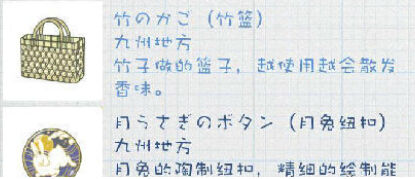 竹のかご（竹篮）
九州地方
竹子做的篮子，越使用越会散发
香味。
月うさぎのボタン（月兔纽扣）
九州地方
月兔的陶制纽扣，精细的绘制能